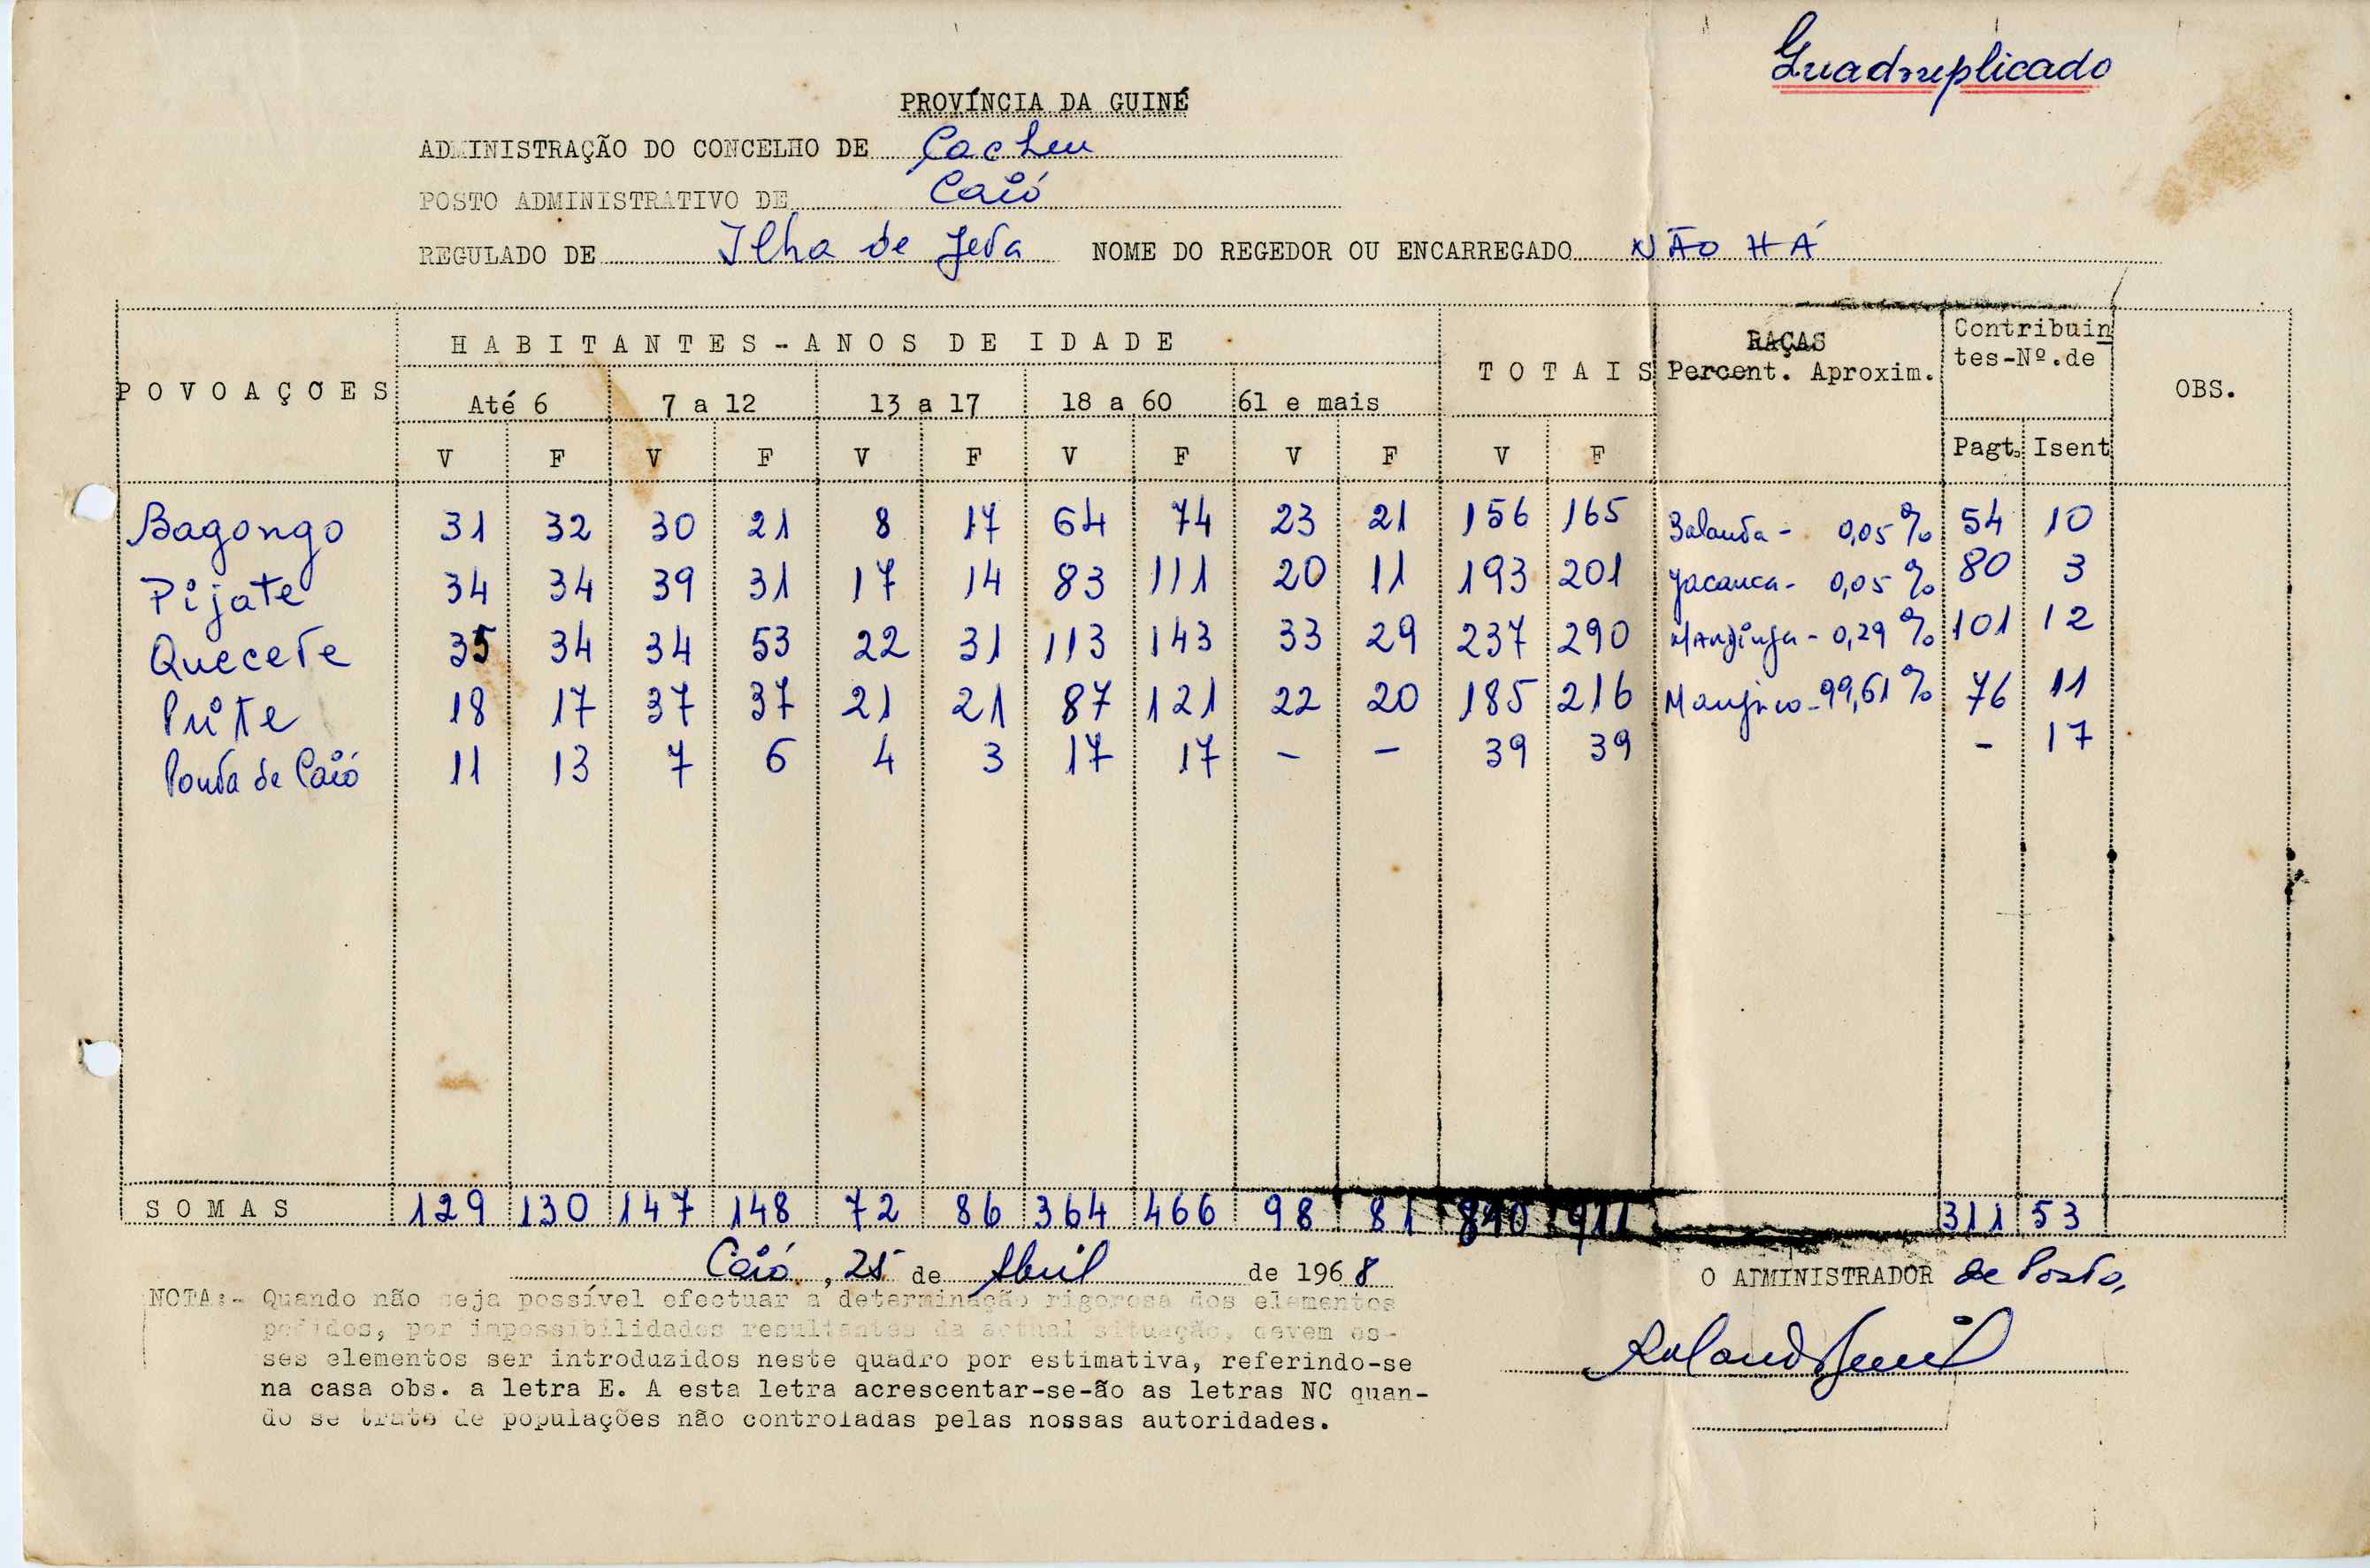 Guadruplicado
PROVÍNCIA DA GUINÉ
ADMINISTRAÇÃO DO CONCELHO DE Cacheu
POSTO ADMINISTRATIVO DE Caió
REGULADO DE Ilha de Jeta NOME DO REGEDOR OU ENCARREGADO NÃO HÁ
POVOAÇÕES HABITANTES-ANOS DE IDADE TOTAIS RAÇAS Percent. Aproxim. Contribuin tes-Nº.de OBS.
Até 6 7 a 12 13 a 17 18 a 60 61 e mais
V F V F V F V F V F V F Pagt. Isent
Bagongo 31 32 30 21 8 17 64 74 23 21 156 165 Balanta - 0,05% 54 10
Pijate 34 34 39 31 17 14 83 111 20 11 193 201 Jacanca - 0,05% 80 3
Quecete 35 34 34 53 22 31 113 143 33 29 237 290 Mandinga - 0,29% 101 12
Púite 18 17 37 37 21 21 87 121 22 20 185 216 Manjaco - 99,61% 76 11
Ponta de Caió 11 13 7 6 4 3 17 17 - - 39 39 - 17
SOMAS 129 130 147 148 72 86 364 466 98 81 810 911 311 53
Caió, 25 de Abril de 1968
O ADMINISTRADOR de Posto,
NOTA:- Quando não seja possível efectuar a determinação rigorosa dos elementos
pedidos, por impossibilidades resultantes da actual situação, devem es-
ses elementos ser introduzidos neste quadro por estimativa, referindo-se
na casa obs. a letra E. A esta letra acrescentar-se-ão as letras NC quan-
do se trate de populações não controladas pelas nossas autoridades.